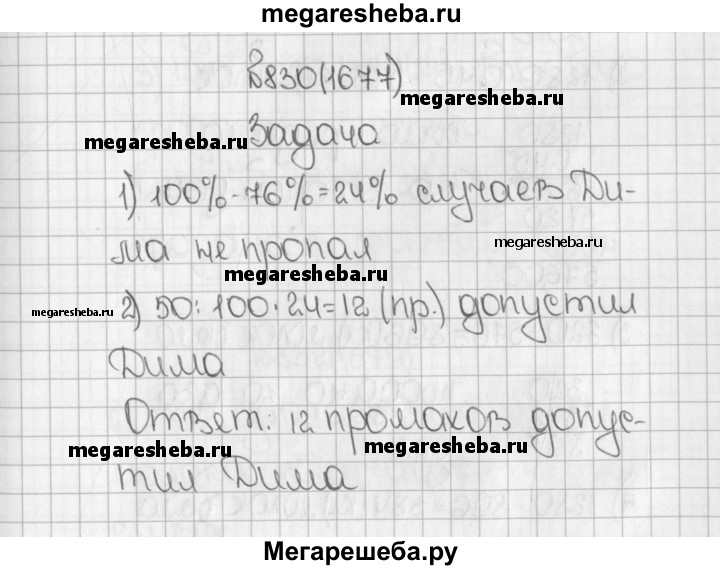 megaresheba.ru
В830(1677)
megaresheba.ru
megaresheba.ru Задача
1) 100%-76%=24% случаев Ди-
ма не пропал megaresheba.ru
megaresheba.ru
megaresheba.ru 2) 50:100·24=12 (пр.) допустил
Дима
Ответ: 12 промахов допус-
megaresheba.ru megaresheba.ru
тил Дима
Мегарешеба.ру